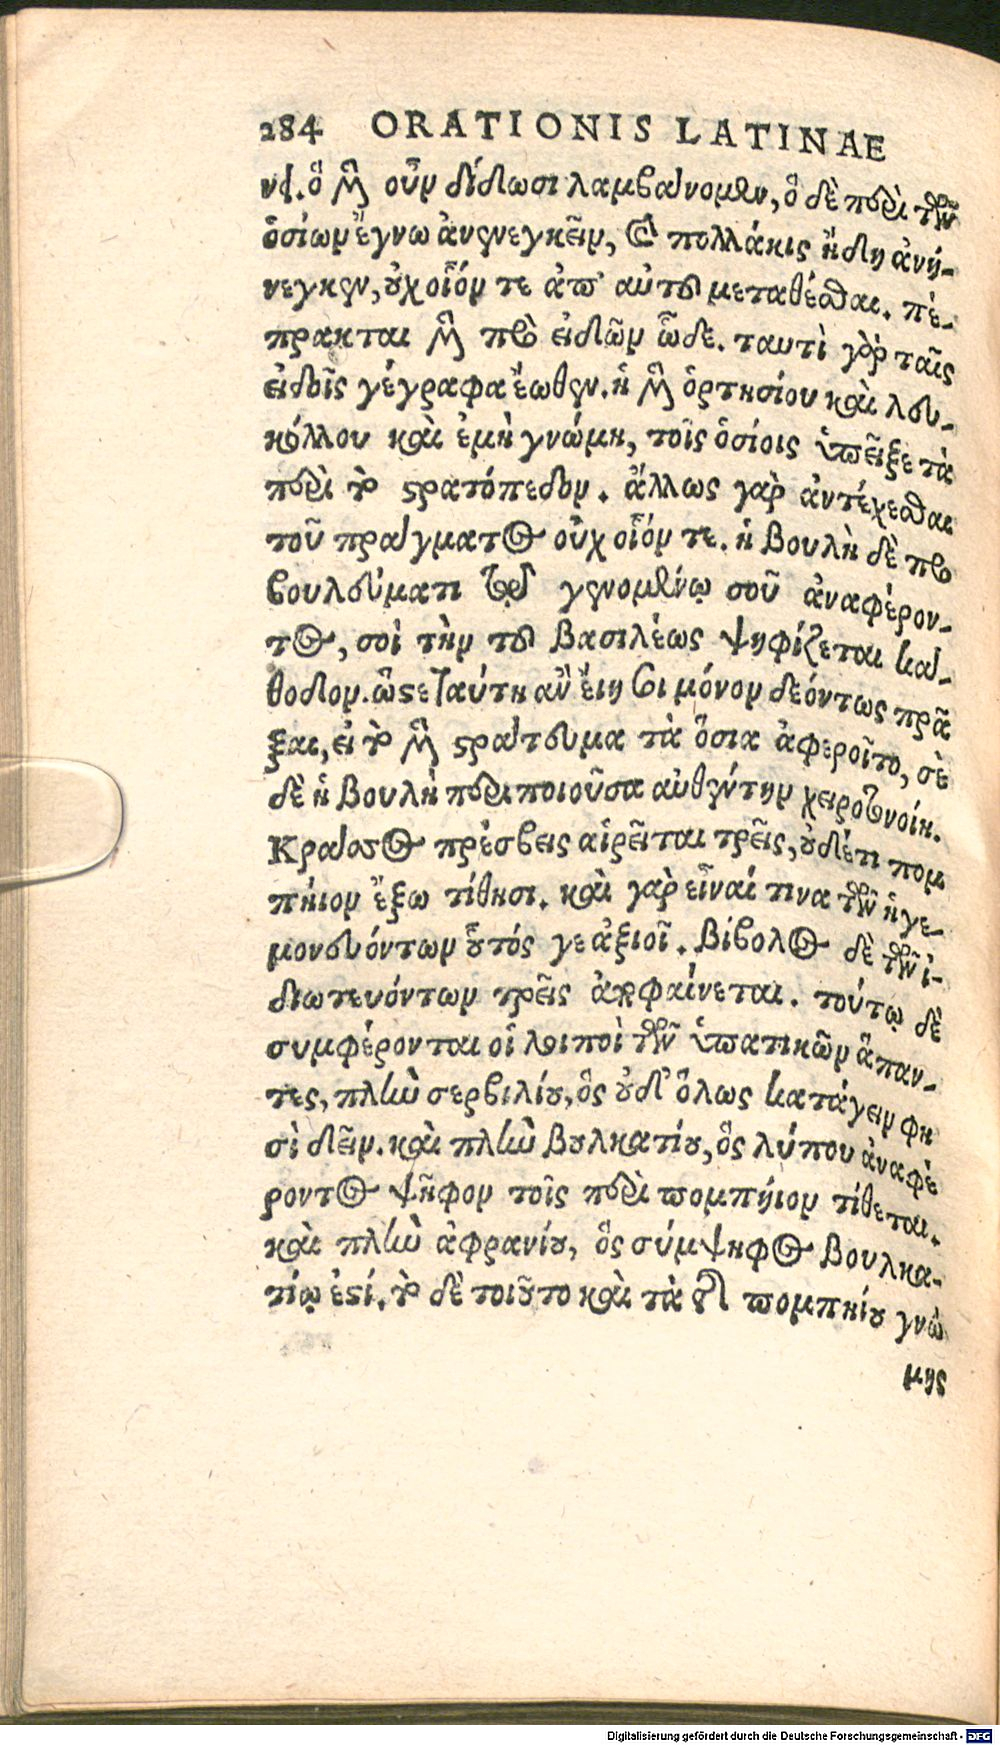 284 ORATIONIS LATINAE
νί. ὃ μὲν οὖν δίδωσι λαμβάνομεν, ὃ δὲ περὶ τῶν
ὁσίων ἔγνω ἀνενεγκεῖν, καὶ πολλάκις ἤδη ἀνή-
νεγκεν, οὐχ οἷόν τε ἀπ' αὐτοῦ μεταθέσθαι. πέ-
πρακται μὲν πρὸ εἰδῶν ὧδε. ταυτὶ γὰρ ταῖς
εἰδοῖς γέγραφα ἕωθεν. ἡ μὲν ὁρτησίου καὶ λευ-
κόλλου καὶ ἐμὴ γνώμη, τοῖς ὁσίοις ὑπεῖξε τὰ
περὶ τὸ στρατόπεδον. ἄλλως γὰρ ἀντέχεσθαι
τοῦ πράγματος οὐχ οἷόν τε. ἡ βουλὴ δὲ τῷ
βουλεύματι τῷδε γενομένῳ σοῦ ἀναφέρον-
τος, σοὶ τὴν τοῦ βασιλέως ψηφίζεται κά-
θοδον. ὥστε ταύτῃ ἂν εἴη σοι μόνον δεόντως πρᾶ
ξαι, εἰ τὸ μὲν στράτευμα τὰ ὅσια ἀφεροῖτο, σὲ
δὲ ἡ βουλὴ περιποιοῦσα αὐθέντην χειροτονοίη.
Κράσσος πρέσβεις αἱρεῖται τρεῖς, οὐδέτι πομ
πήιον ἔξω τίθησι. καὶ γὰρ εἶναί τινα τῶν ἡγε-
μονευόντων οὗτός γε ἀξιοῖ. βίβολος δὲ τῶν ἰ-
διωτευόντων τρεῖς ἀποφαίνεται. τούτῳ δὲ
συμφέρονται οἱ λοιποὶ τῶν ὑπατικῶν ἅπαν-
τες, πλὴν σερβιλίου, ὃς οὐδ' ὅλως κατάγειν φη
σὶ δεῖν. καὶ πλὴν βουλκατίου, ὃς λύπου ἀναφέ
ροντος ψῆφον τοῖς περὶ πομπήιον τίθεται.
καὶ πλὴν ἀφρανίου, ὃς σύμψηφος βουλκα-
τίῳ ἐστί. τὸ δὲ τοιοῦτο καὶ τὰ τῆς πομπηίου γνώ
μης
Digitalisierung gefördert durch die Deutsche Forschungsgemeinschaft - DFG